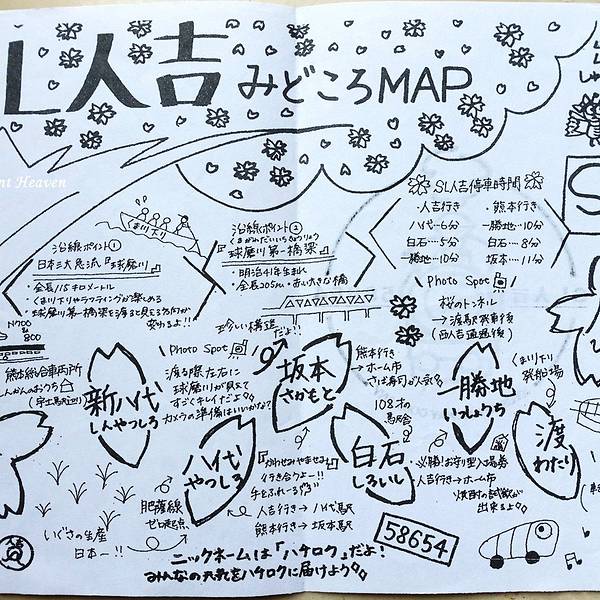 SL人吉 みどころMAP
nt Heaven
SL人吉停車時間
・人吉行き
八代…6分
白石…5分
一勝地…10分
・熊本行き
一勝地…10分
白石…8分
坂本…11分
沿線ポイント①
日本三大急流『球磨川』
・全長115キロメートル
・くま川下りやラフティングが楽しめる
・球磨川第一橋梁を渡ると見える方向が
変わるよ!!
くま川下り
沿線ポイント②
くまがわだいいちきょうりょう
『球磨川第一橋梁』
明治41年生まれ
・全長205m・赤い大きな橋
珍しい構造
だよ!!
Photo Spot
桜のトンネル
→渡駅発車後
(西人吉通過後)
N700
&
800
熊本総合車両所
しんかんのおうち
(宇土駅近辺)
Photo Spot
渡る際左右に
球磨川が見えて
すごくキレイだよ。
カメラの準備はいいかな?
新八代
しんやつしろ
八代
やつしろ
坂本
さかもと
白石
しろいし
一勝地
いっしょうち
渡
わたり
熊本行き
→ホーム市
さば寿司が人気
108才の
駅舎
くま川下り
発船場
・必勝!お守り型入場券
・人吉行き→ホーム市
焼酎の試飲が
出来るよ
かわせみやませみ
行き合うよー!!
手をふれーる
人吉行き→八代駅
熊本行き→坂本駅
肥薩線
ゼロ起点
いぐさの生産
日本一!!
58654
ニックネームは「ハチロク」だよ!
みんなの元気をハチロクに届けよう